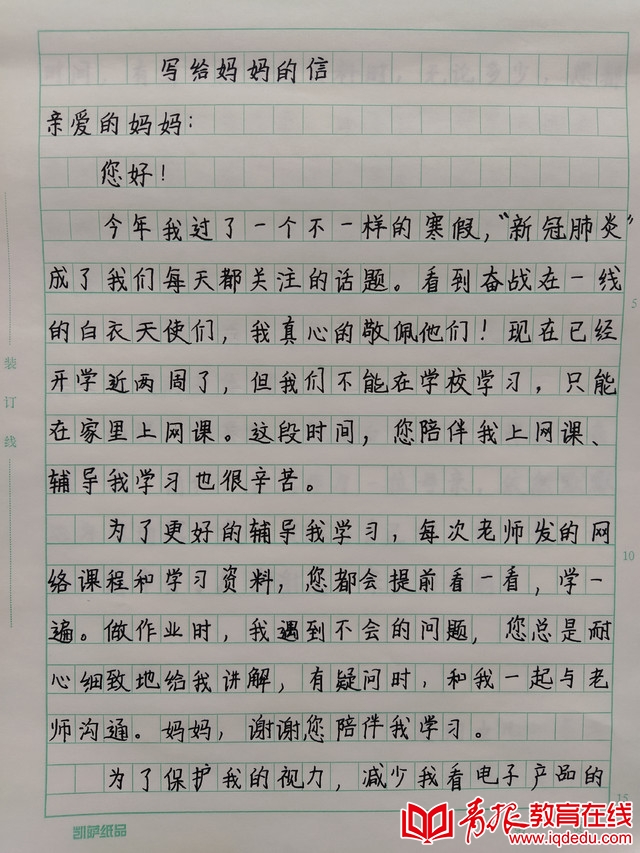 写给妈妈的信
亲爱的妈妈:
您好!
今年我过了一个不一样的寒假,“新冠肺炎”
成了我们每天都关注的话题。看到奋战在一线
的白衣天使们,我真心的敬佩他们!现在已经
开学近两周了,但我们不能在学校学习,只能
在家里上网课。这段时间,您陪伴我上网课、
辅导我学习也很辛苦。
为了更好的辅导我学习,每次老师发的网
络课程和学习资料,您都会提前看一看,学一
遍。做作业时,我遇到不会的问题,您总是耐
心细致地给我讲解,有疑问时,和我一起与老
师沟通。妈妈,谢谢您陪伴我学习。
为了保护我的视力,减少我看电子产品的
装订线
5
10
15
凯萨纸品
青报教育在线
www.iqdedu.com